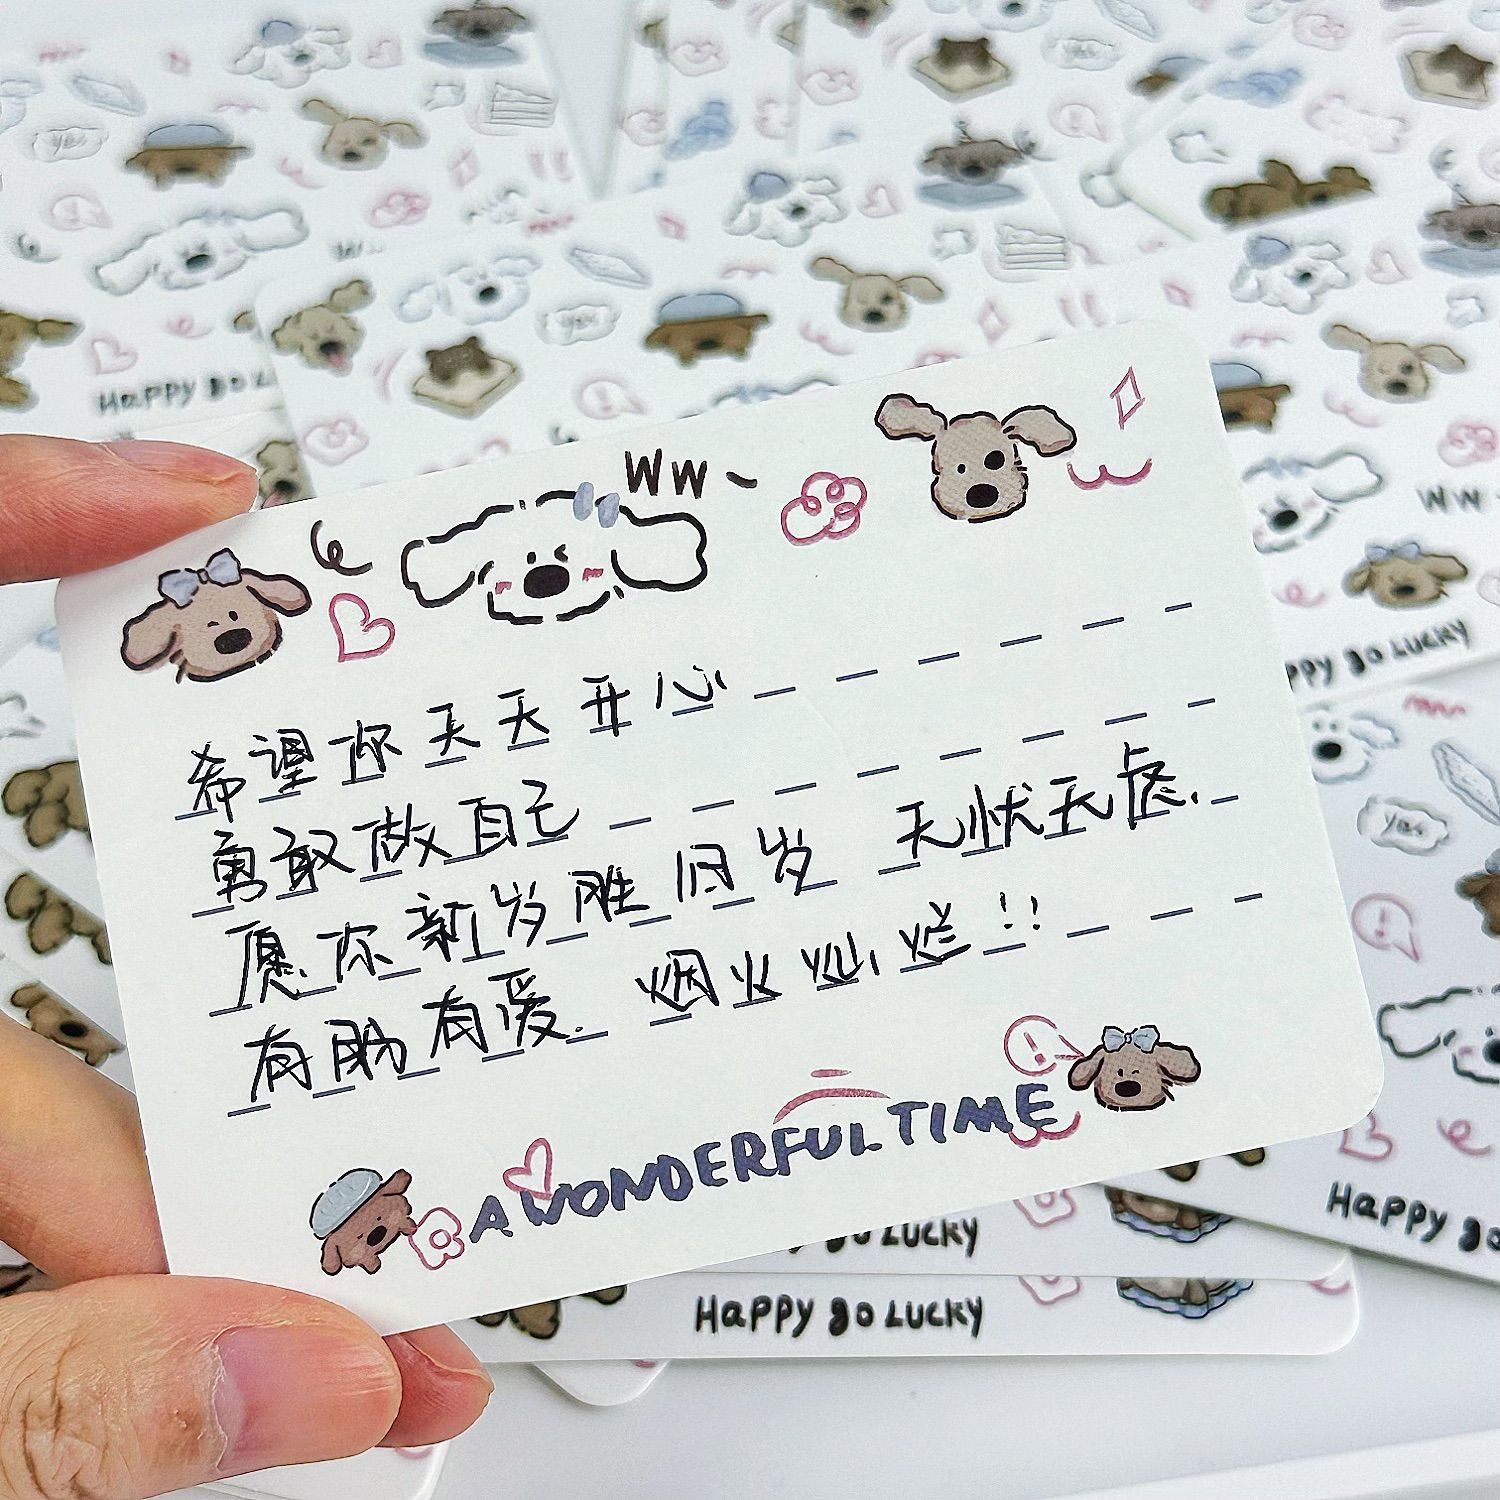 WW~
希望你天天开心
勇敢做自己
愿你新岁胜旧岁 无忧无虑.
有盼有爱. 烟火灿烂!!
A WONDERFUL TIME
Happy go Lucky
Happy go Lucky
yes
yes
yes
yes
WW